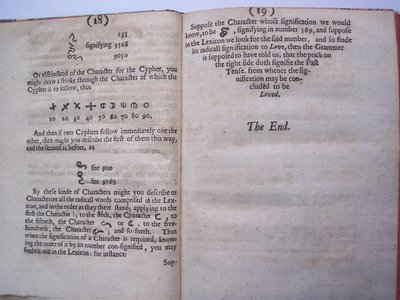 (18)
235
signifying 3568
9050
Or else instead of the Character for the Cypher, you
might draw a stroke through the Character of which the
Cypher is to follow, thus
10 20 30 40 50 60 70 80 90.
And then if two Cyphers follow immediately one the
other, then might you describe the first of them this way,
and the second as before, as
for 900
for 9065
By these kinde of Characters might you describe or
Characterize all the radicall words comprised in the Lex-
icon, and in the order as they there stand, applying to the
first the Character ; to the fifth, the Character , to
the fiftieth, the Character or , to the five-
hundreth, the Character , and so forth. Thus
when the signification of a Character is required, know-
ing the order of it by its number con-signified, you may
finde it out in the Lexicon: for instance:
Sup-
(19)
Suppose the Character whose signification we would
know, to be , signifying in number 569, and suppose
in the Lexicon we look for the said number, and so finde
its radicall signification to Love, then the Grammer
is supposed to have told us, that the prick on
the right side doth signifie the Past
Tense. from whence the sig-
nification may be con-
cluded to be
Loved.
The End.